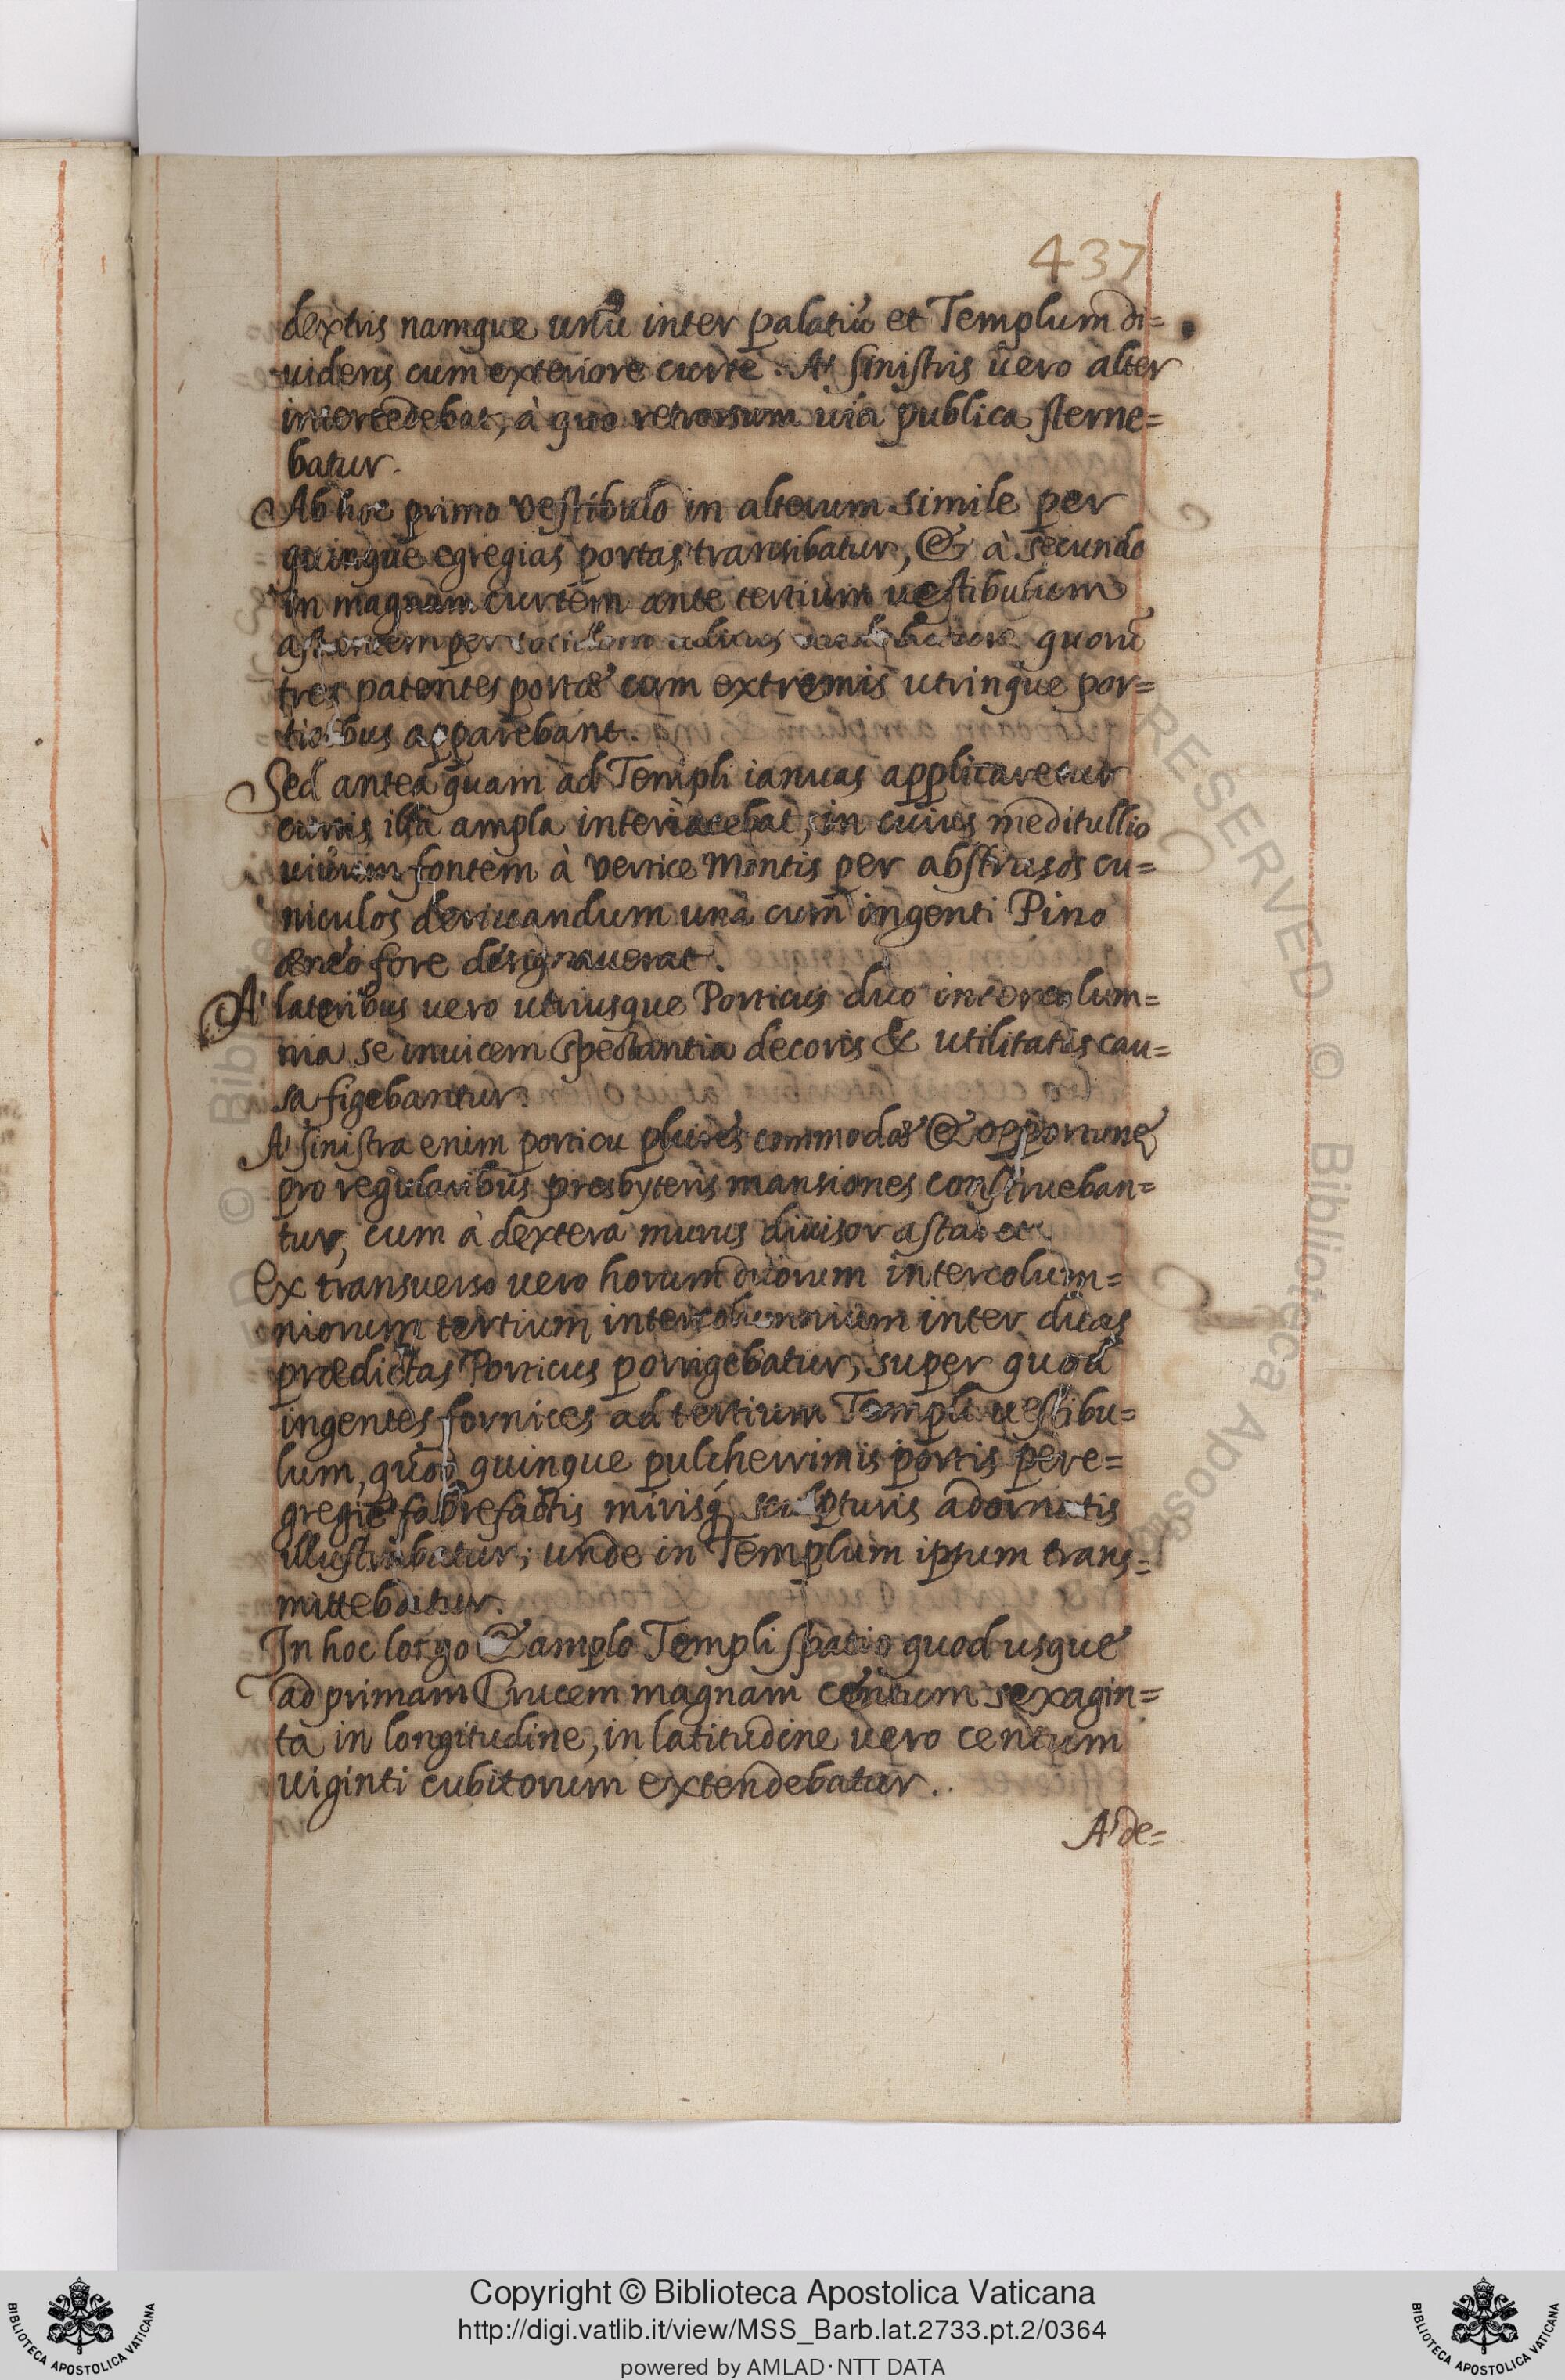 437
dextris namque unũ inter palatiũ et Templum di=
uidens cum exteriore curte. A' sinistris uero alter
intercedebat, à quo retrorsum uia publica sterne=
batur.
Ab hoc primo vestibulo in alterum simile per
quinque egregias portas transibatur, & à secundo
in magnam curtem ante tertium uestibulum
astantem per totidem aditus quorũ
tres patentes portæ cum extremis utrinque por=
ticibus apparebant.
Sed antea quam ad Templi ianuas applicaretur
curtis illa ampla interiacebat, in cuius meditullio
uiuum fontem à vertice Montis per abstrusos cu=
niculos deriuandum unà cum ingenti Pino
æneo fore designauerat.
A' lateribus uero utriusque Porticus duo intercolum=
nia se inuicem spectantia decoris & utilitatis cau=
sa figebantur.
A' sinistra enim porticu plures commodæ & opportunę
pro regularibus presbyteris mansiones construeban=
tur, cum à dextera murus diuisor astaret.
Ex transuerso uero horum duorum intercolum=
niorum tertium intercolumnium inter duas
prædictas Porticus porrigebatur, super quod
ingentes fornices ad tertium Templi uestibu=
lum, quod quinque pulcherrimis portis pere=
gregie fabrefactis mirisq́ sculpturis adornatis
illustrabatur; unde in Templum ipsum trans=
mittebatur.
In hoc largo & amplo Templi spatio quod usque
ad primam Crucem magnam centum sexagin=
ta in longitudine, in latitudine uero centum
uiginti cubitorum extendebatur.
A' de=
© Biblioteca Apostolica
RESERVED © Biblioteca Apostolica
Copyright © Biblioteca Apostolica Vaticana
http://digi.vatlib.it/view/MSS_Barb.lat.2733.pt.2/0364
powered by AMLAD·NTT DATA
BIBLIOTECA APOSTOLICA VATICANA
BIBLIOTECA APOSTOLICA VATICANA